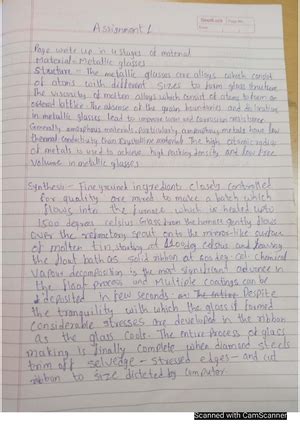 Assignment 1
Page write up in 4 stages of material
Material: Metallic glasses
Structure - The metallic glasses are alloys which consist
of atoms with different sizes to form glass structure
The viscosity of molten alloys which consist of atoms to form an
ordered lattice. The absence of the grain boundaries and dislocation
in metallic glasses lead to improve wear and corrosive resistance.
Generally amorphous materials, particularly amorphous metals have low
thermal conductivity than crystalline material. The high atomic radius
of metals is used to achieve high packing density and low free
volume in metallic glasses.
Synthesis - Fine ground ingredients closely controlled
for quality are mixed to make a batch which
flows into the furnace which is heated upto
1500 degree celsius Glass from the furnace gently flows
over the refractory spout onto the mirror-like surface
of molten tin, starting at 1100deg celsius and leaving
the float bath as solid ribbon at 600deg cel chemical
vapour decomposition is the most significant advance in
the float process and multiple coatings can be
deposited in few seconds Despite
the tranquility with which the glass is formed
considerable stresses are developed in the ribbon
as the glass cools. The entire process of glass
making is finally complete when diamond steels
trim off selvedge - stressed edges - and cut
ribbon to size dictated by computer.
Scanned with CamScanner